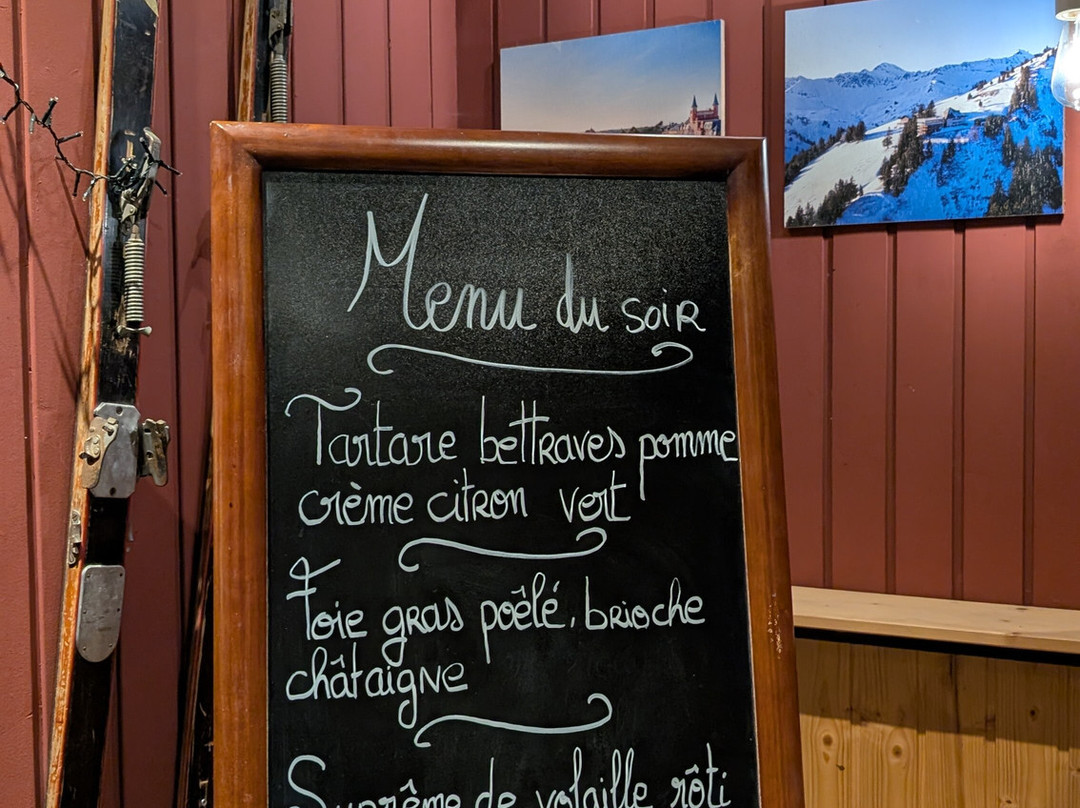 Menu du soir
Tartare bettraves pomme
crème citron vert
Foie gras poêlé, brioche
châtaigne
Suprême de volaille rôti